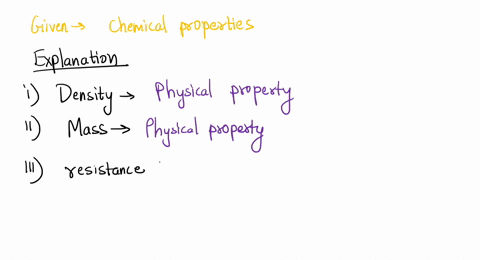 Given → Chemical properties
Explanation
i) Density → Physical property
ii) Mass → Physical property
iii) resistance